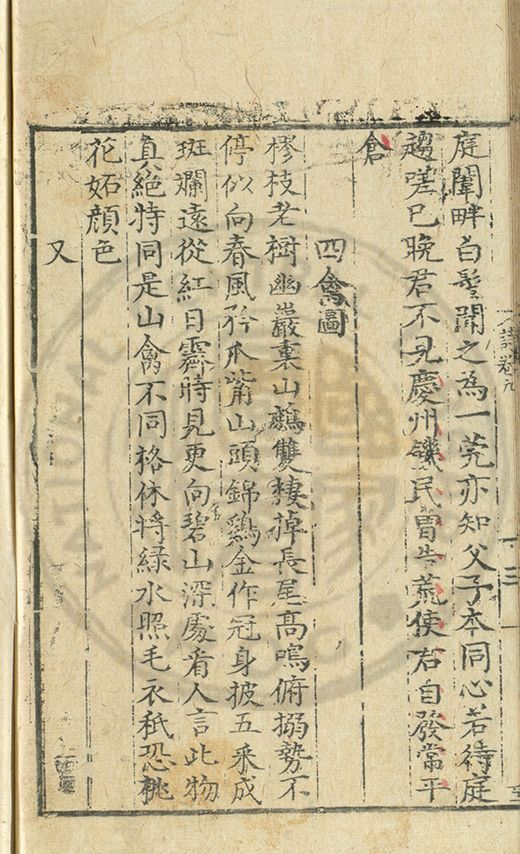 庭闈畔白髮聞之為一莞亦知父子本同心若待庭
趨嗟已晚君不見慶州饑民曾告荒使君自發常平
倉
四禽圖
樛枝老樹幽巖裏山鷓雙棲掉長尾高鳴俯搦勢不
停似向春風矜爪觜山頭錦鷄金作冠身披五采成
斑斕遠從紅日霽時見更向碧山深處看人言此物
真絕特同是山禽不同格休將綠水照毛衣秖恐桃
花妬顏色
又